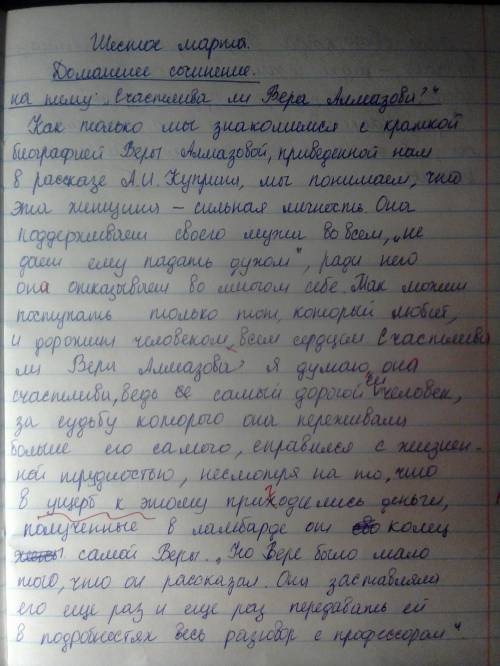 Шестое марта.
Домашнее сочинение.
на тему: „Счастлива ли Вера Алмазова?"
Как только мы знакомимся с краткой
биографией Веры Алмазовой, приведенной нам
в рассказе А.И. Куприна, мы понимаем, что
эта женщина – сильная личность. Она
поддерживает своего мужа во всем, „не
дает ему падать духом", ради него
она отказывает во многом себе. Так может
поступать только тот, который любит,
и дорожит человеком всем сердцем Счастлива
ли Вера Алмазова? Я думаю, она
счастлива, ведь самый дорогой ей человек,
за судьбу которого она переживала
больше его самого, справился с жизнен-
ной трудностью, несмотря на то, что
в ущерб к этому приходились деньги,
полученные в ламбарде от колец
самой Веры. „Но Вере было мало
того, что он рассказал. Она заставляла
его еще раз и еще раз передавать ей
в подробностях весь разговор с профессором"